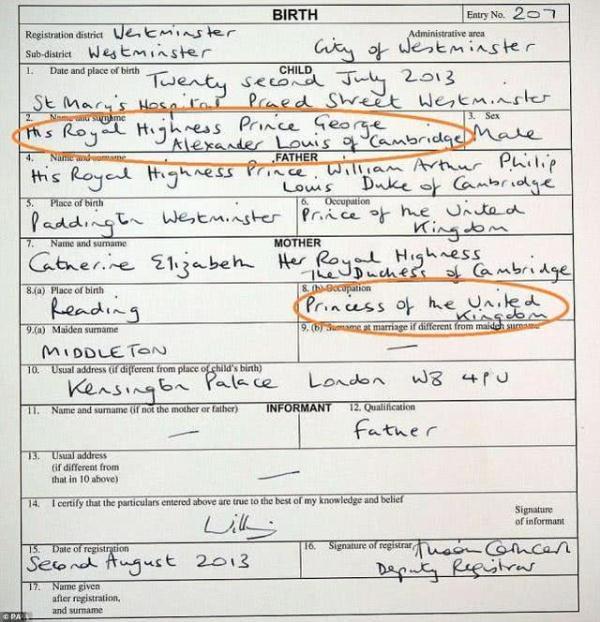 BIRTH
Entry No. 207
Registration district Westminster
Administrative area
Sub-district Westminster
City of Westminster
CHILD
1. Date and place of birth
Twenty second July 2013
St Mary's Hospital Praed Street Westminster
2. Name and surname
3. Sex
His Royal Highness Prince George
Alexander Louis of Cambridge
Male
FATHER
4. Name and surname
His Royal Highness Prince William Arthur Philip
Louis Duke of Cambridge
5. Place of birth
6. Occupation
Paddington Westminster
Prince of the United
Kingdom
MOTHER
7. Name and surname
Catherine Elizabeth Her Royal Highness
The Duchess of Cambridge
8.(a) Place of birth
8. (b) Occupation
Reading
Princess of the United
Kingdom
9.(a) Maiden surname
9. (b) Surname at marriage if different from maiden surname
MIDDLETON
—
10. Usual address (if different from place of child's birth)
Kensington Palace London W8 4PU
INFORMANT
11. Name and surname (if not the mother or father)
12. Qualification
—
Father
13. Usual address
(if different from
that in 10 above)
—
14. I certify that the particulars entered above are true to the best of my knowledge and belief
Signature
of informant
15. Date of registration
16. Signature of registrar
Second August 2013
Deputy Registrar
17. Name given
after registration,
and surname
© PA